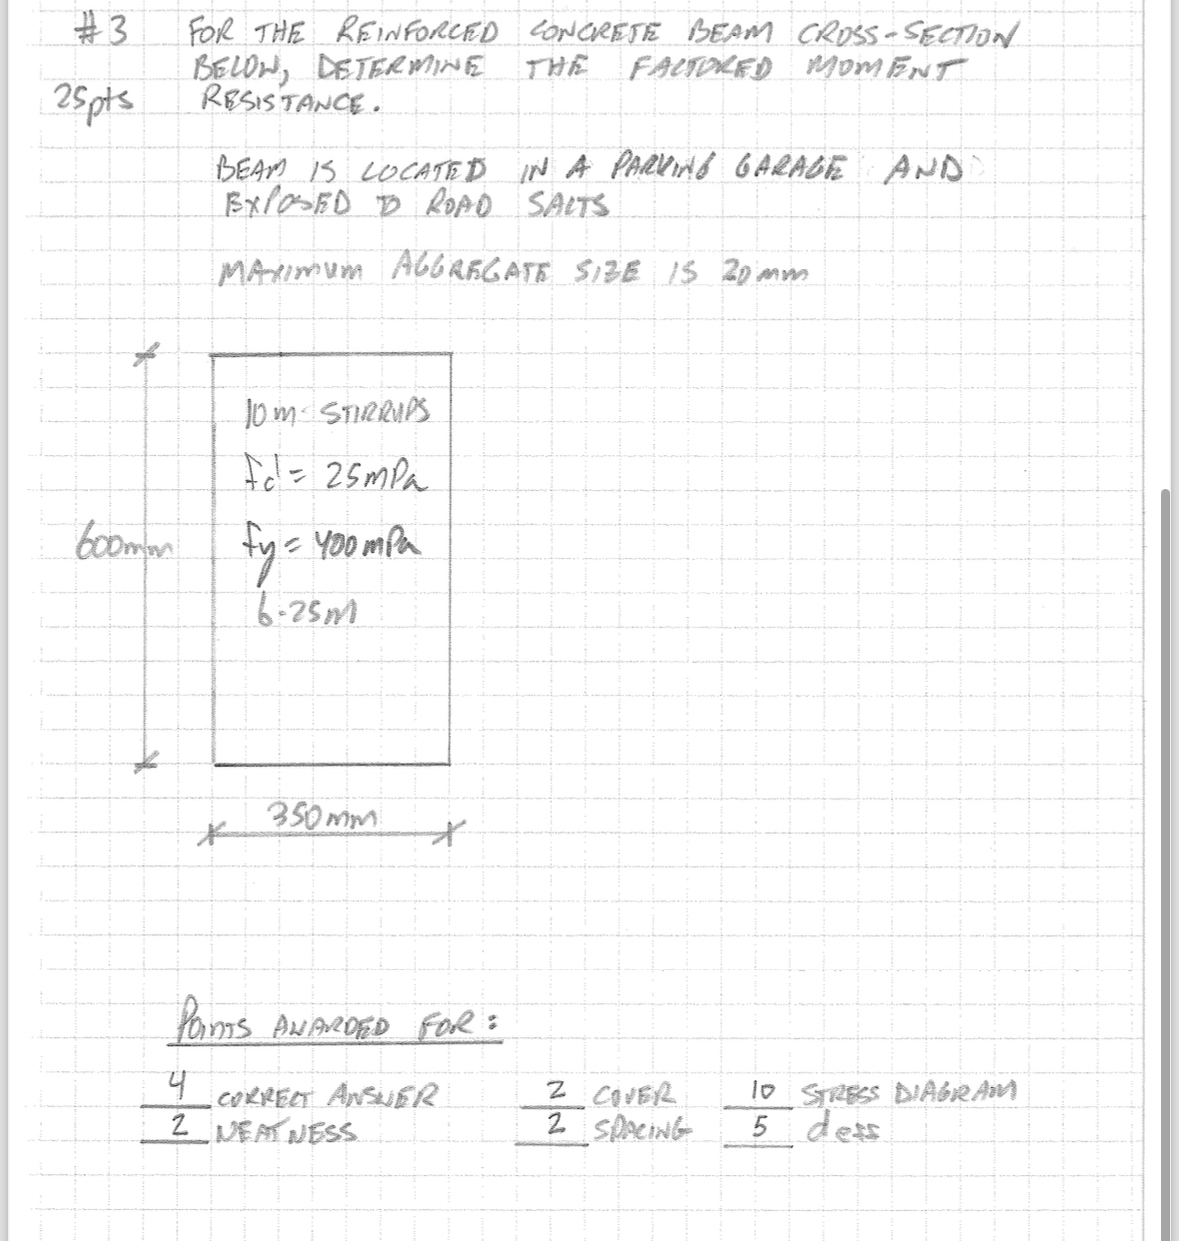 #3 FOR THE REINFORCED CONCRETE BEAM CROSS-SECTION
BELOW, DETERMINE THE FACTORED MOMENT
25pts RESISTANCE.
BEAM IS LOCATED IN A PARKING GARAGE AND
EXPOSED TO ROAD SALTS
MAXIMUM AGGREGATE SIZE IS 20mm
10m STIRRUPS
fc' = 25mPa
600mm
fy = 400mPa
6-25M
350mm
POINTS AWARDED FOR:
4 CORRECT ANSWER 2 COVER 10 STRESS DIAGRAM
2 NEATNESS 2 SPACING 5 deff